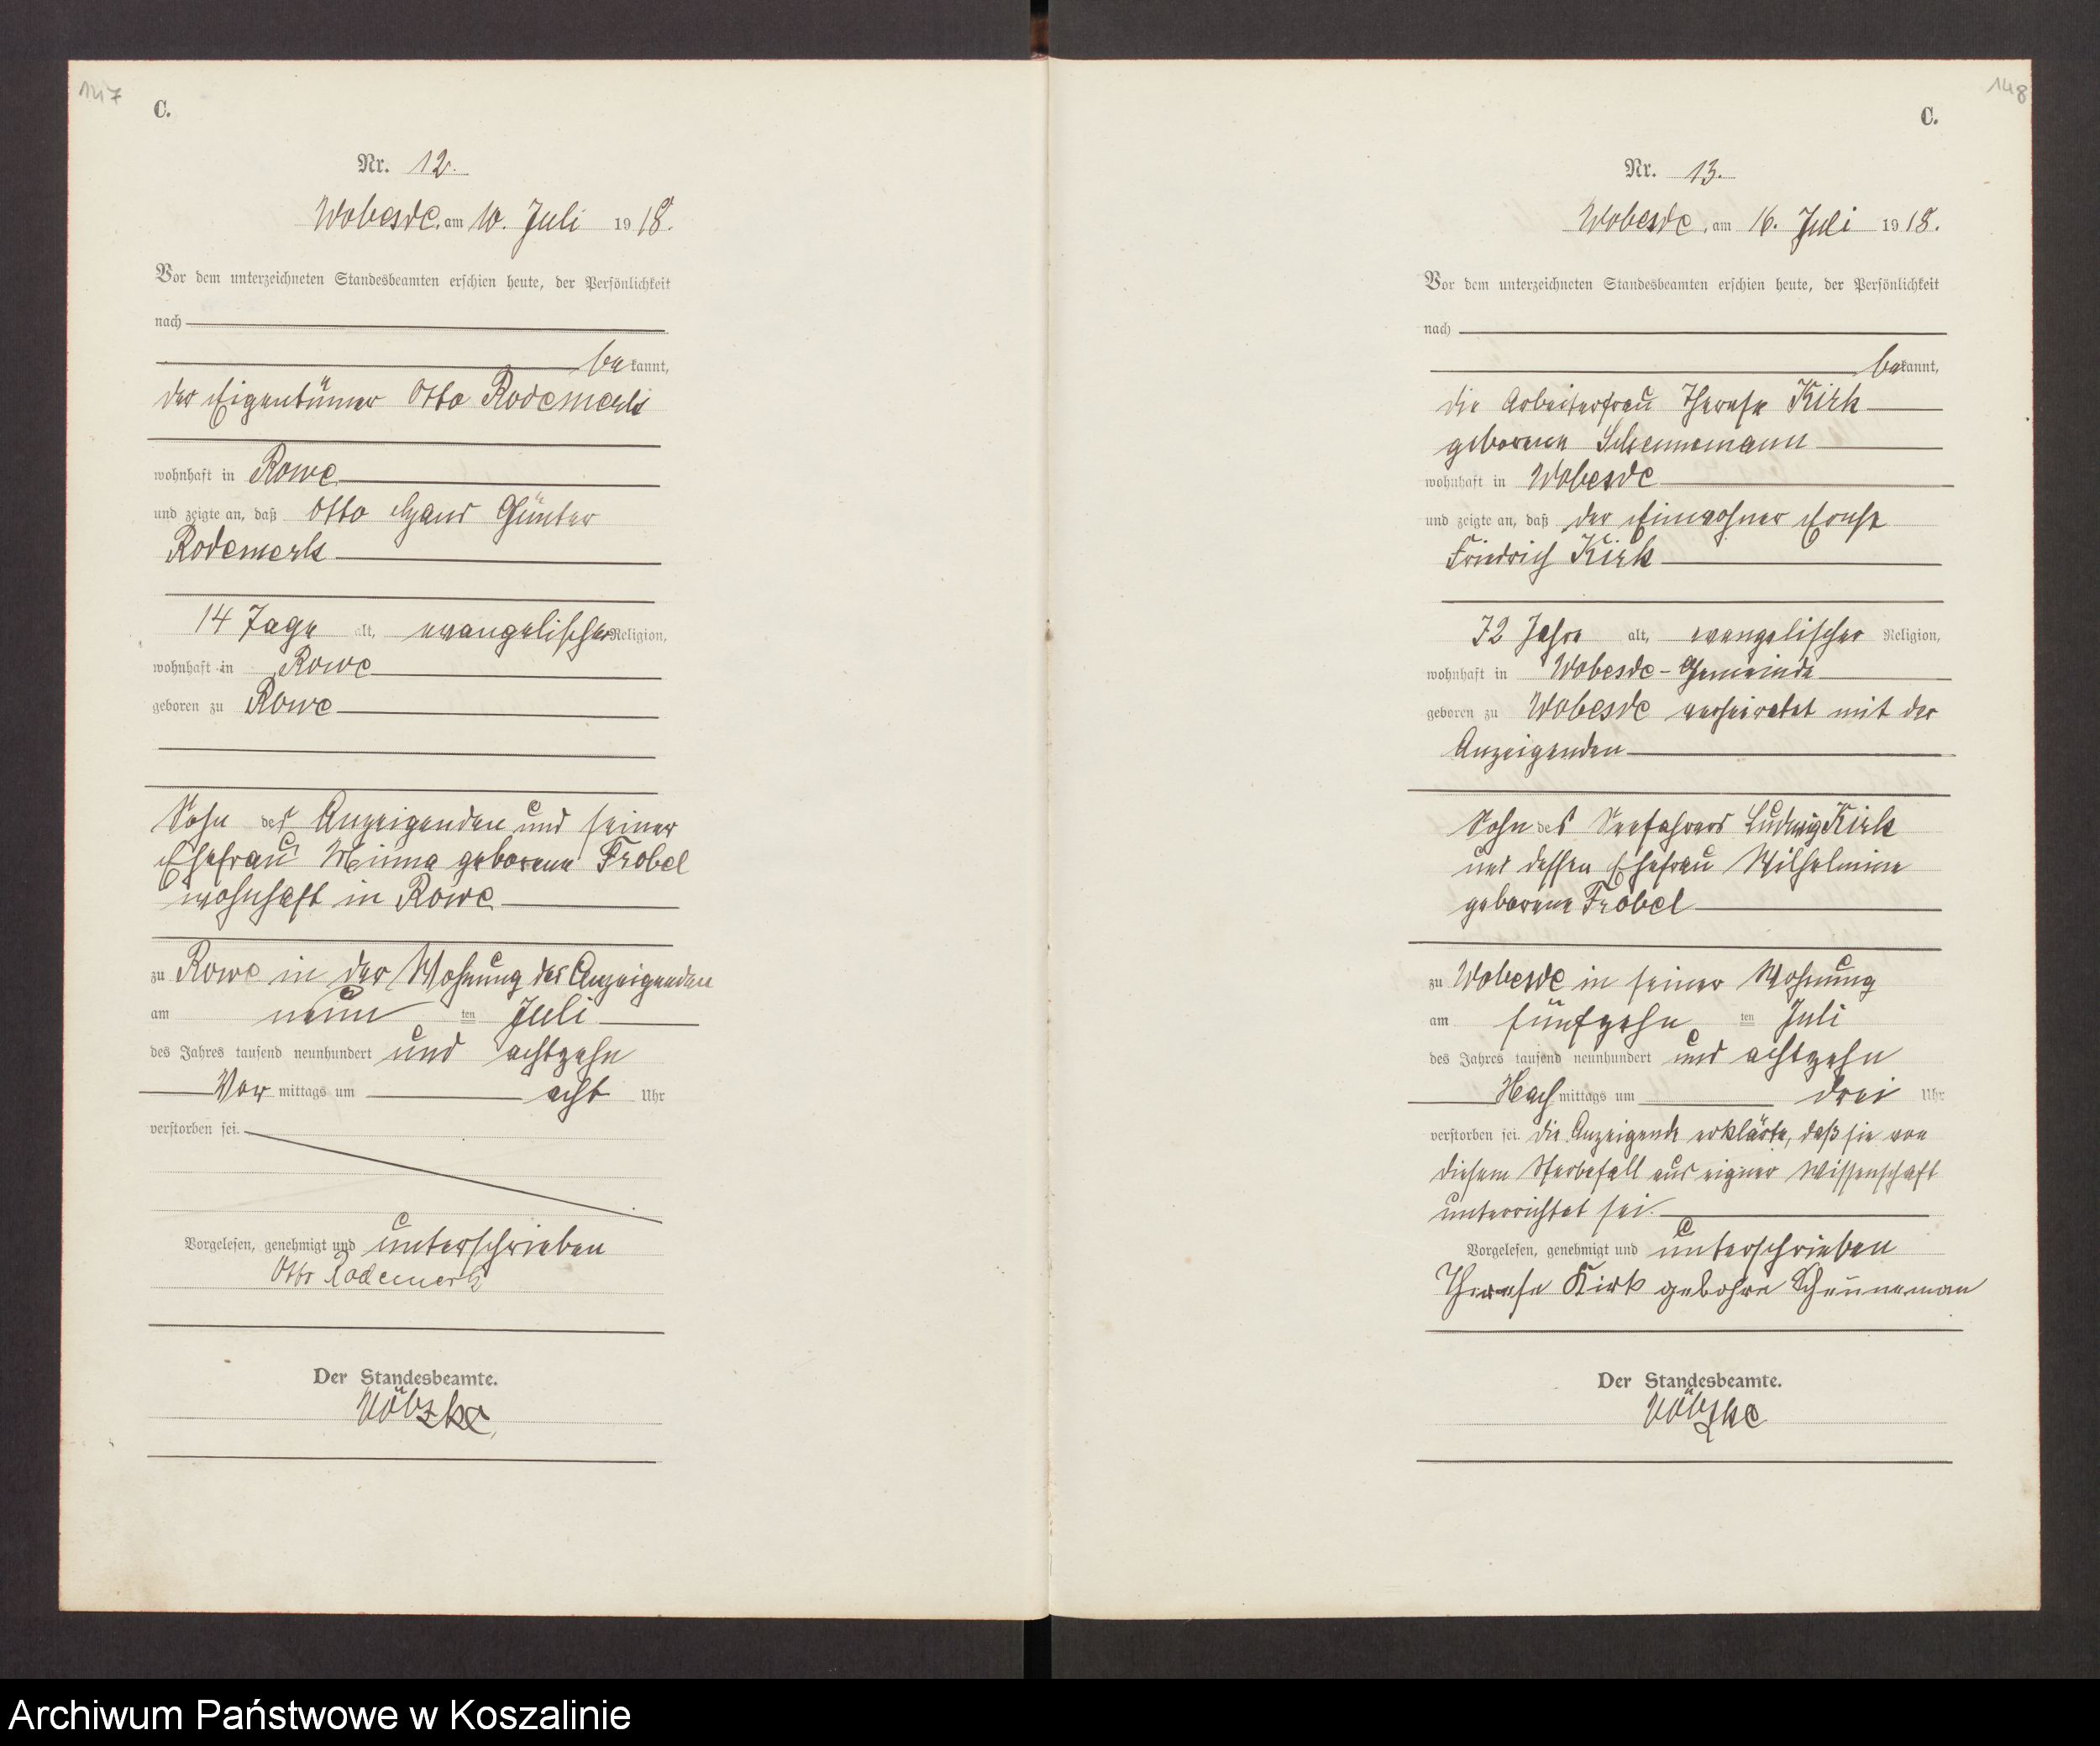 147
C.
Nr. 12.
Wobesde, am 10. Juli 1918.
Vor dem unterzeichneten Standesbeamten erschien heute, der Persönlichkeit
nach
be kannt,
der Eigentümer Otto Rodemerk
wohnhaft in Rowe
und zeigte an, daß Otto Hans Günter
Rodemerk
14 Tage alt, evangelischer Religion,
wohnhaft in Rowe
geboren zu Rowe
Sohn des Anzeigenden und seiner
Ehefrau Minna geborene Frobel
wohnhaft in Rowe
zu Rowe in der Wohnung des Anzeigenden
am neun ten Juli
des Jahres tausend neunhundert und achtzehn
Vor mittags um acht Uhr
verstorben sei.
Vorgelesen, genehmigt und unterschrieben
Otto Rodemerk
Der Standesbeamte.
148
C.
Nr. 13.
Wobesde, am 16. Juli 1918.
Vor dem unterzeichneten Standesbeamten erschien heute, der Persönlichkeit
nach
be kannt,
die Arbeiterfrau Therese Kirk
geborene Scheunemann
wohnhaft in Wobesde
und zeigte an, daß der Einwohner Ernst
Friedrich Kirk
72 Jahre alt, evangelischer Religion,
wohnhaft in Wobesde-Gemeinde
geboren zu Wobesde verheiratet mit der
Anzeigenden
Sohn des Seefahrers Ludwig Kirk
und dessen Ehefrau Wilhelmine
geborene Frobel
zu Wobesde in seiner Wohnung
am fünfzehn ten Juli
des Jahres tausend neunhundert und achtzehn
Nach mittags um drei Uhr
verstorben sei. Die Anzeigende erklärte, daß sie von
diesem Sterbefall aus eigner Wissenschaft
unterrichtet sei.
Vorgelesen, genehmigt und unterschrieben
Therese Kirk gebohre Scheuneman
Der Standesbeamte.
Archiwum Państwowe w Koszalinie